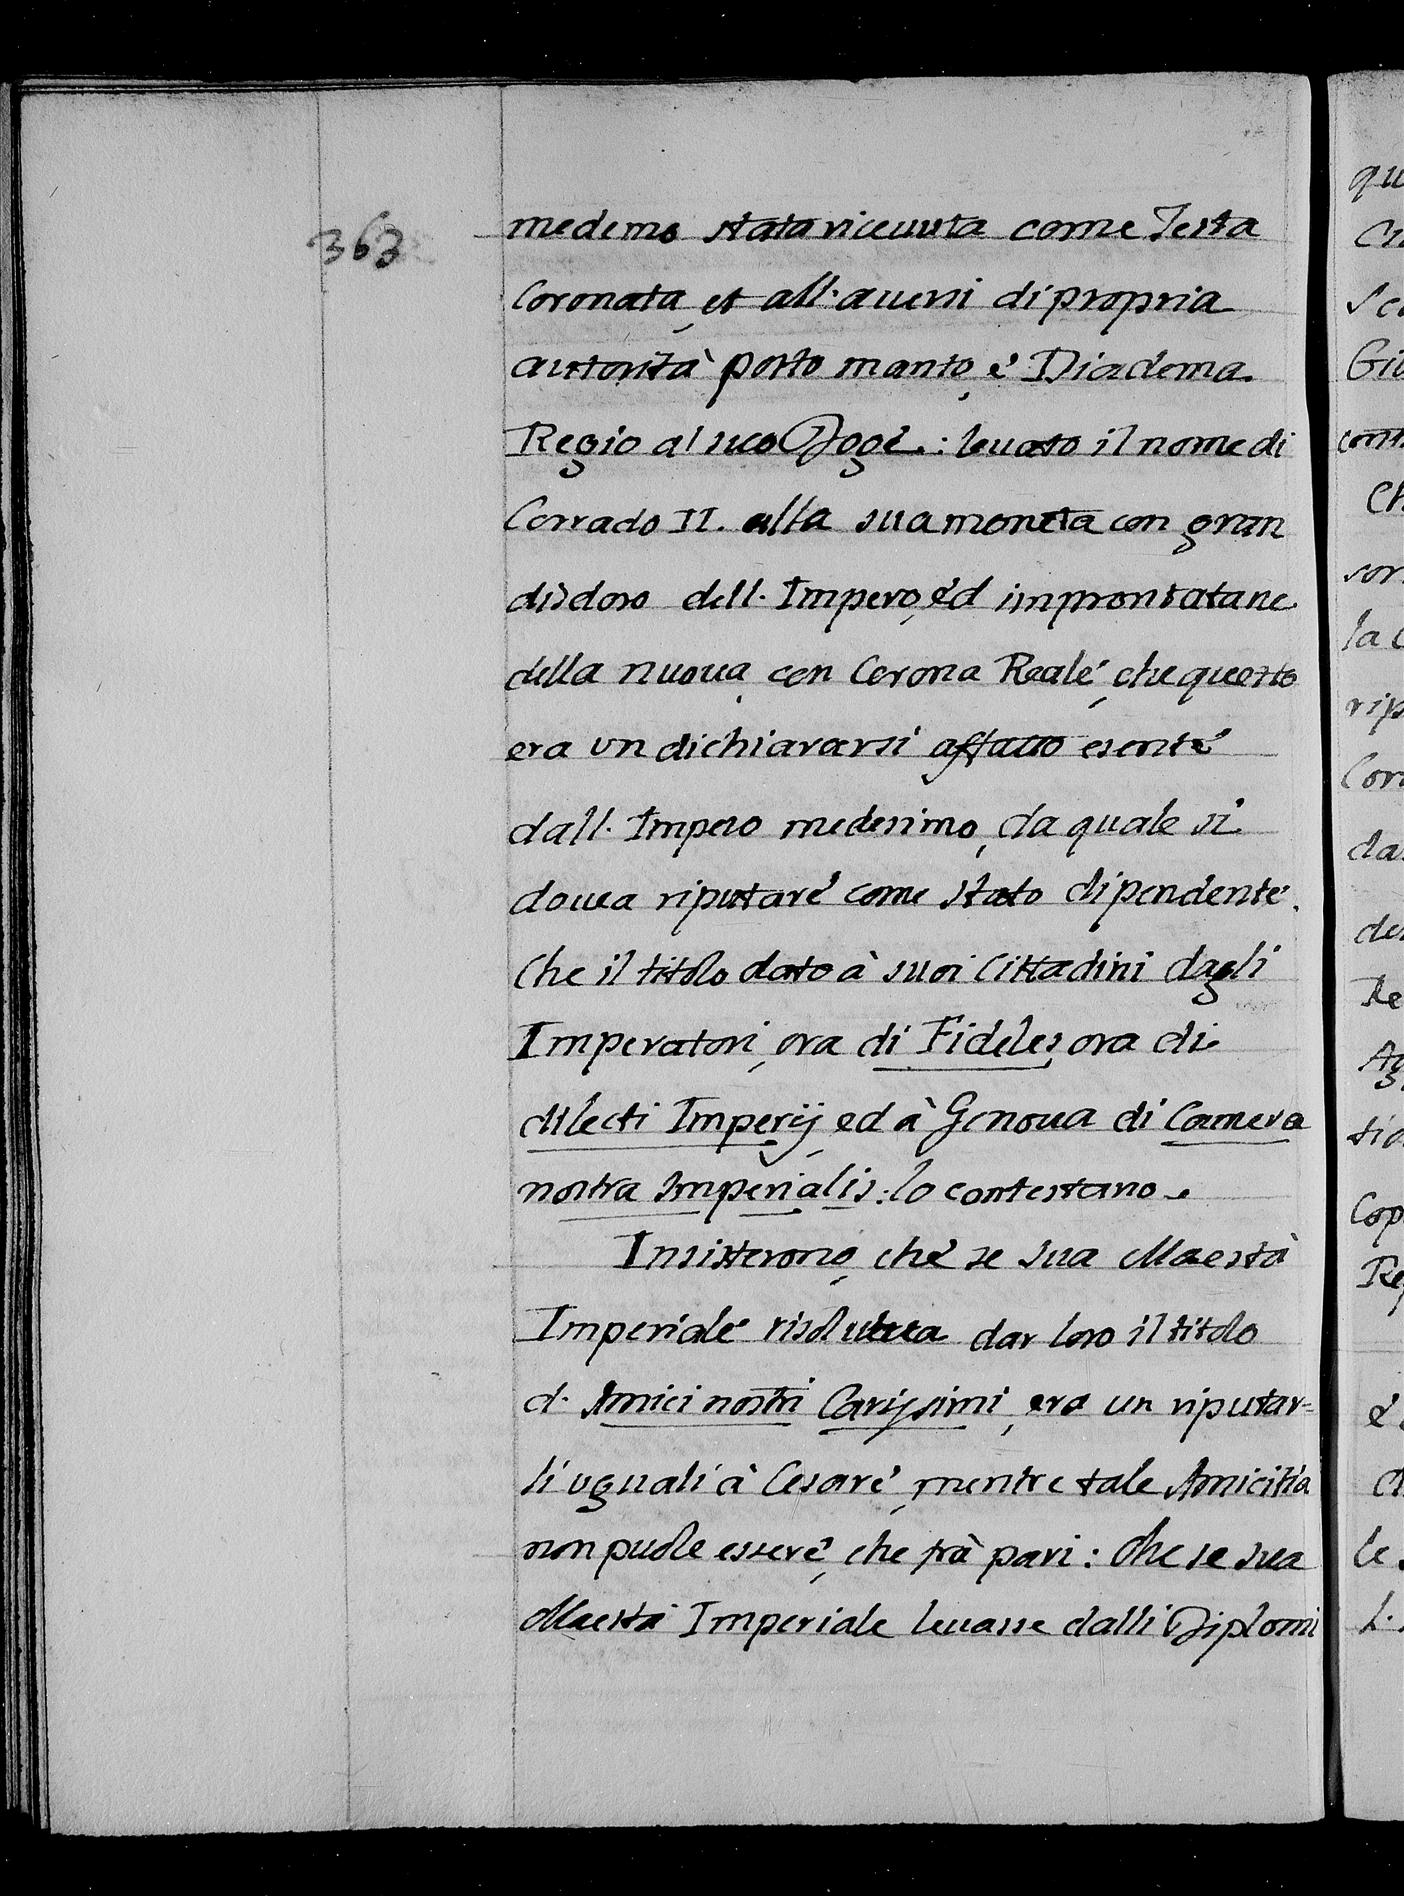 363
medemo stata riceuuta come Testa
Coronata, et all' auersi di propria
autorità posto manto, è Diadema
Regio al suo Dogè.: leuato il nome di
Corrado II. alla sua moneta con gran
disdoro dell' Impero, èd improntatane
della nuoua, con Corona Realè, che questo
era un dichiararsi affatto esentè
dall' Impero medesimo, da quale si
douea riputarè come Stato dipendentè.
Che il titolo dato à suoi Cittadini dagli
Imperatori, ora di Fideles, ora di
dilecti Imperij, ed à Genoua di Camera
nostra Imperialis: lo contestano.
Insisterono, chè se sua Maestà
Imperialè risolueua dar loro il titolo
d' Amici nostri Carissimi, era un riputar=
li uguali à Cesarè, mentre tale Amicitia
non puole esserè, che trà pari: Che se sua
Maestà Imperiale leuasse dalli Diplomi
qu
Cr
Se
Giu
cont
Ch
sor
la C
rip
Cor
da
de
Re
Ag
tio
Cop
Re
è
le